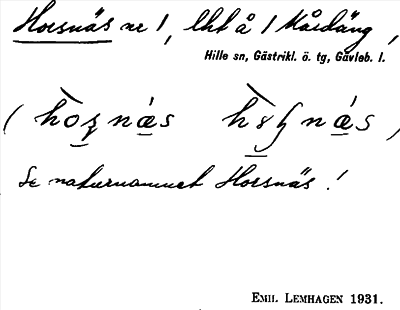 Horsnäs nr 1, lht å 1 Mårdäng,
Hille sn, Gästrikl. ö. tg, Gävleb. l.
Se naturnamnet Horsnäs!
EMIL LEMHAGEN 1931.